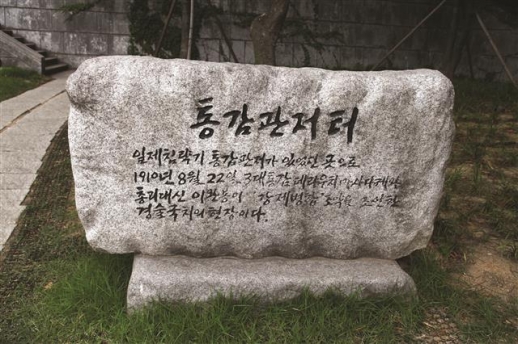 통감관저터
일제침략기 통감관저가 있었던 곳으로
1910년 8월 22일 3대 통감 데라우치 마사다케와
총리대신 이완용이 강제병합 조약을 조인한
경술국치의 현장이다.